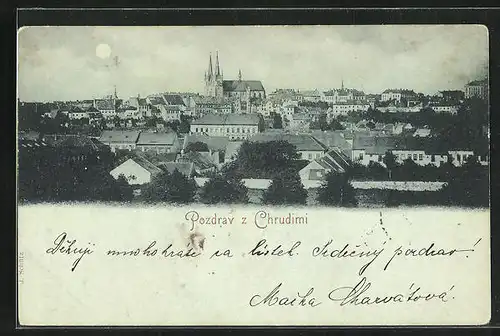 Pozdrav z Chrudimi
Děkuji mnohokráte za lístek. Srdečný pozdrav!
Mačka Charvátová.